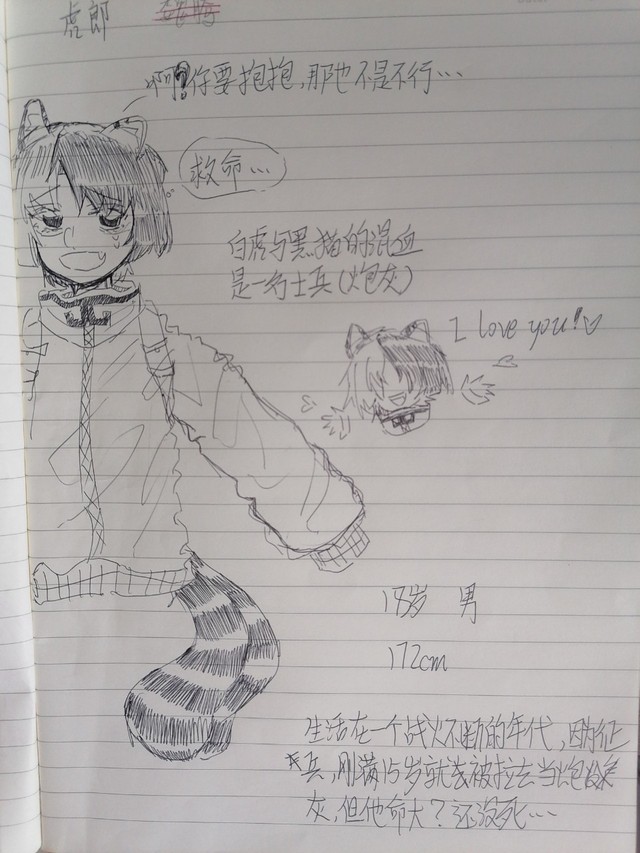 虎郎
啊?你要抱抱,那也不是不行…
救命…
白虎与黑猫的混血
是一名士兵(炮灰)
I love you!♡
18岁 男
172cm
生活在一个战火不断的年代,因为征
兵,刚满15岁就被拉去当炮
灰,但他命大?还没死…